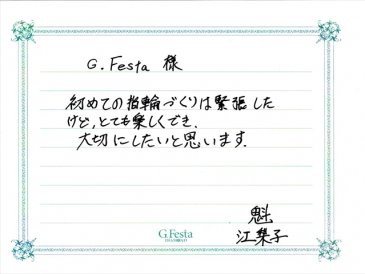 G.Festa 様
初めての指輪づくりは緊張した
けど、とても楽しくでき、
大切にしたいと思います。
魁
江梨子
G.Festa